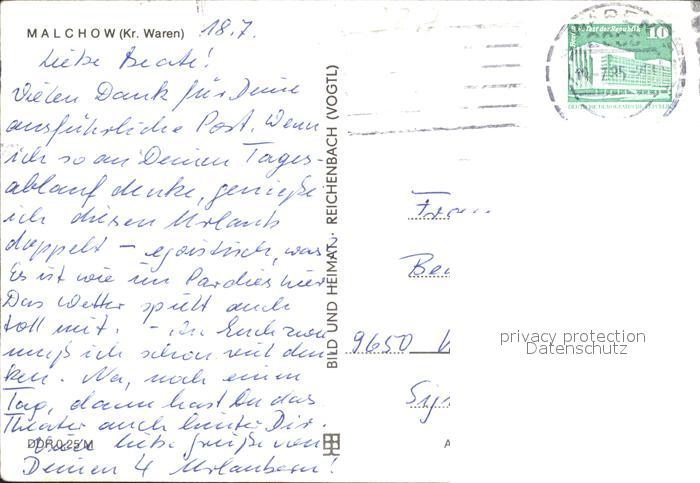 MALCHOW (Kr. Waren) 18.7.
Liebe Beate!
Vielen Dank für Deine
ausführliche Post. Wenn
ich so an Deinen Tages-
ablauf denke, genieße
ich diesen Urlaub
doppelt – egoistisch, was?
Es ist wie im Paradies hier
Das Wetter spielt auch
toll mit. – An Euch
muß ich schon viel den
ken. Na, noch einen
Tag, dann hast Du das
Theater auch hinter Dir.
DDR 0,25 M
Viele liebe Grüße von
Deinen 4 Urlaubern!
BILD UND HEIMAT · REICHENBACH (VOGTL)
10
Palast der Republik
Frau
Be
9650
privacy protection
Datenschutz
A